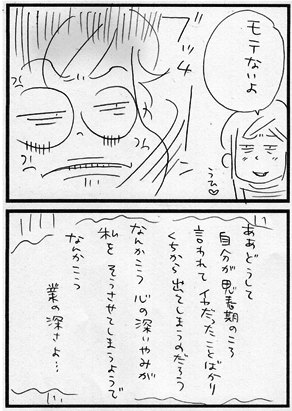 モテないよ
ブッ4
うひ♡
ああどうして
自分が思春期のころ
言われてイヤだったことばかり
くちから出てしまうのだろう
なんかこう心の深いやみが
私をそうさせてしまうようで
なんかこう
業の深さよ…